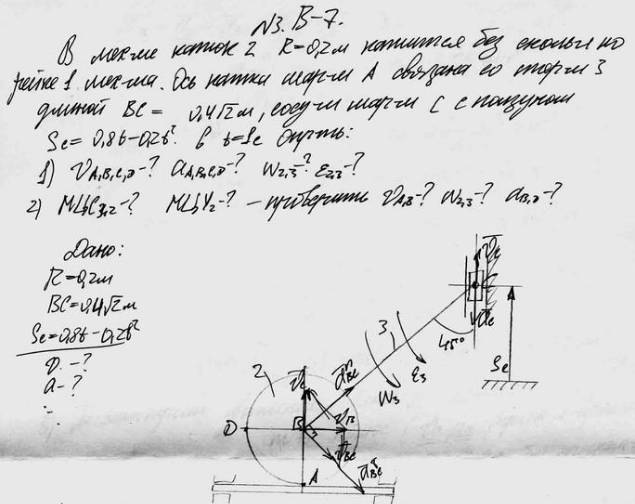 N3. В-7.
В мех-ме каток 2 R=0,2м катится без скольж по
рейке 1 мех-ма. Ось катка шарн А связана со стерж 3
длиной BC = 0,4√2м, соедин шарн C с ползуном
Sc = 0,8t-0,2t². В t=1с опр-ть:
1) V_A,B,C,D-? a_A,B,C,D-? W2,3-? ε2,3-?
2) МЦС3,2-? МЦУ2-? - проверить V_A,B-? W2,3-? a_B,D-?
Дано:
R=0,2м
BC=0,4√2м
Sc=0,8t-0,2t²
V-?
a-?
Vc
ac
Sc
45°
3
ε3
W3
aBC^n
2
Vc
VB
D
B
VBC
aBC^τ
A